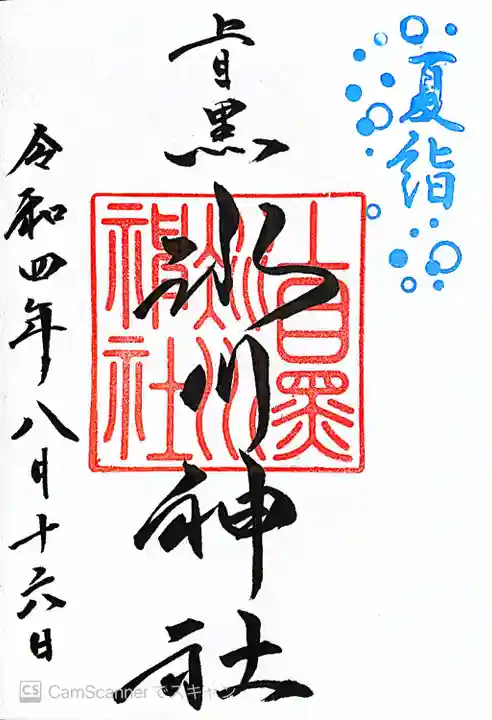 夏詣
上目黒
氷川神社
上目黒
氷川
神社
令和四年八月十六日
CS CamScanner でスキャン